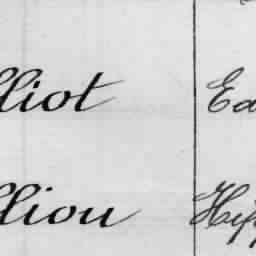 lliot Ed
llion Hip